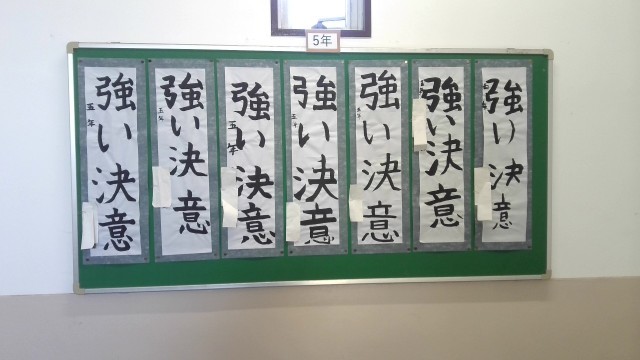 5年
強い決意
五年
強い決意
五年
強い決意
五年
強い決意
五年
強い決意
五年
強い決意
強い決意